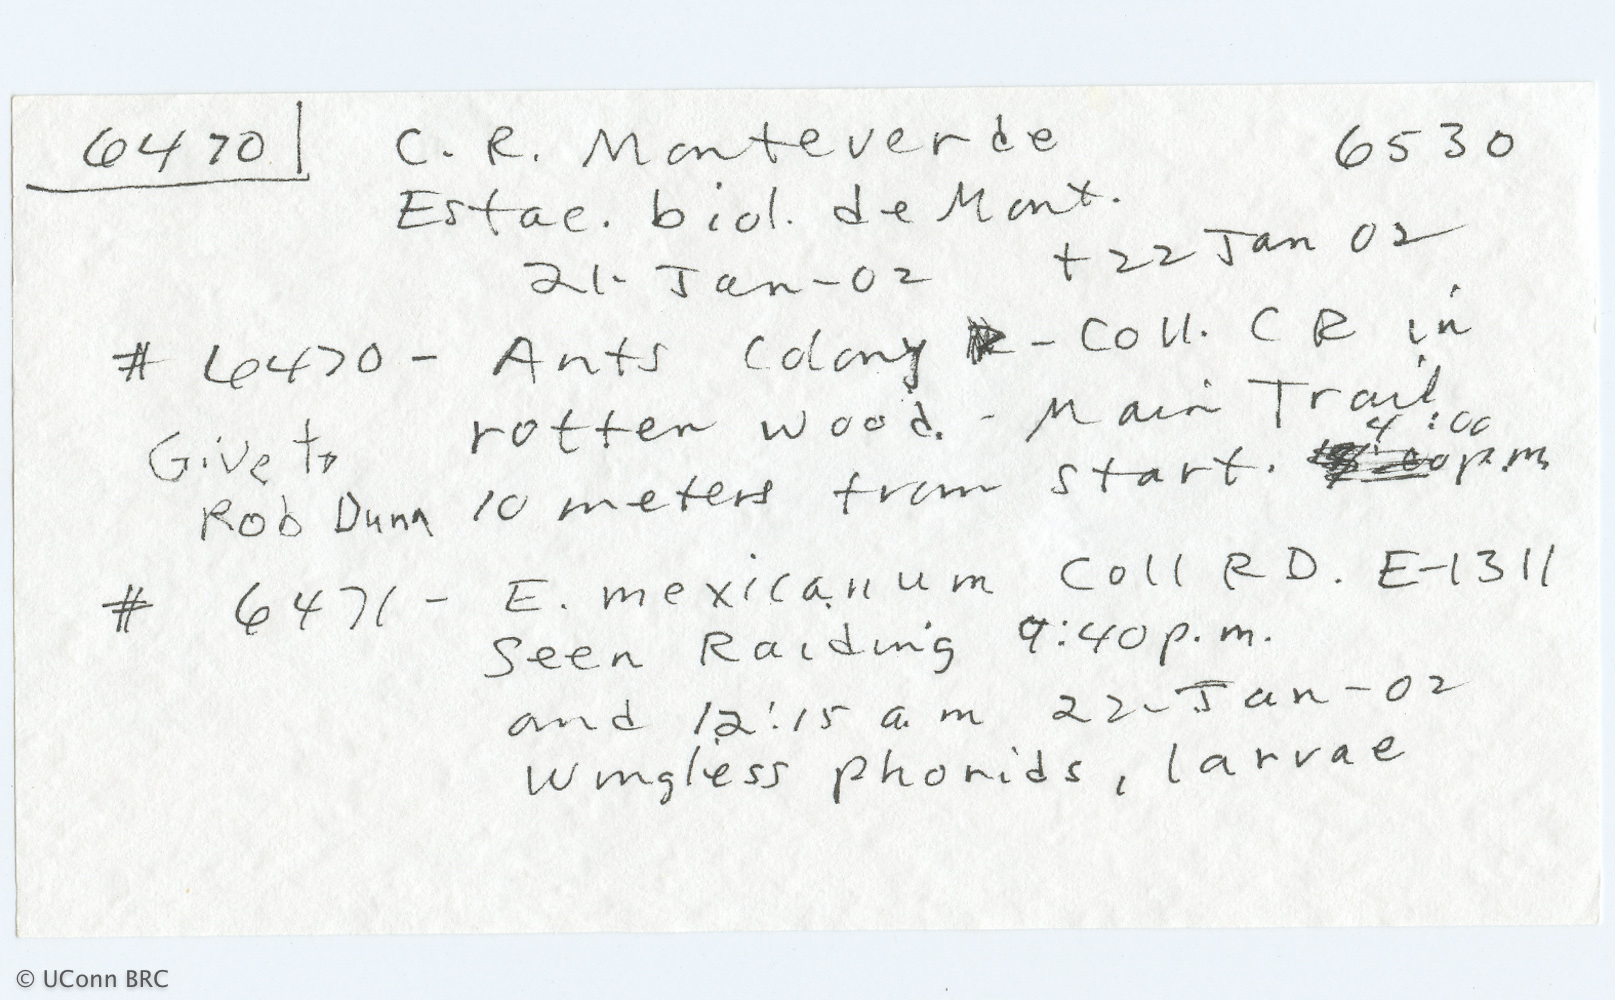 6470 C. R. Monteverde 6530
Estac. biol. de Mont.
21-Jan-02 + 22 Jan 02
# 6470 - Ants Colony - Coll. CR in
rotten wood. - Main Trail
Give to
Rob Dunn 10 meters from start. 4:00 p.m
# 6471 - E. mexicanum Coll RD. E-1311
Seen Raiding 9:40 p.m.
and 12:15 a.m 22-Jan-02
Wingless phorids, larvae
© UConn BRC